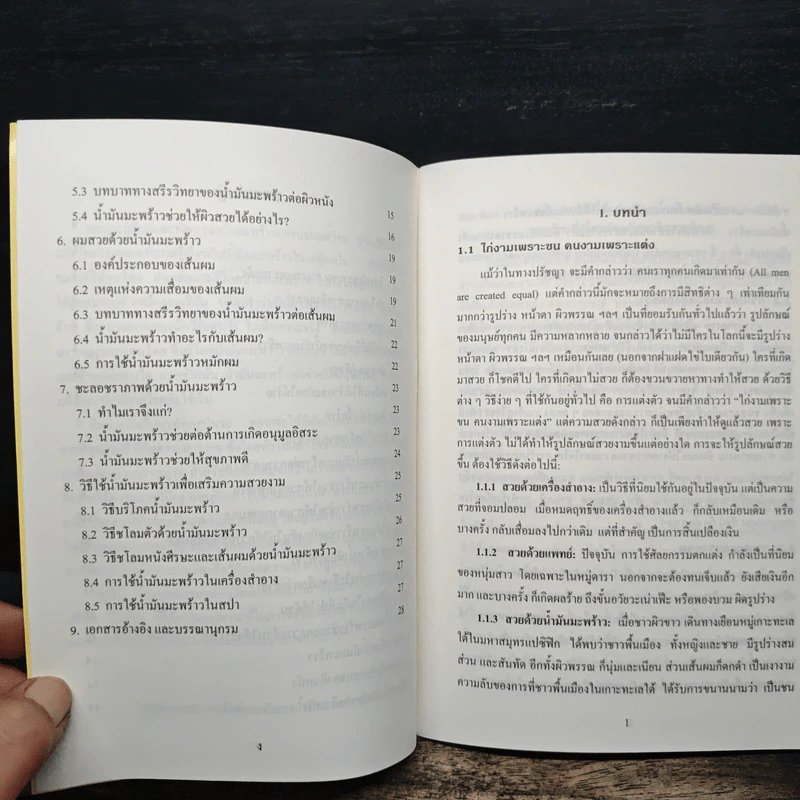 5.3 บทบาททางสรีรวิทยาของน้ำมันมะพร้าวต่อผิวหนัง
5.4 น้ำมันมะพร้าวช่วยให้ผิวสวยได้อย่างไร? 15
6. ผมสวยด้วยน้ำมันมะพร้าว 16
6.1 องค์ประกอบของเส้นผม 19
6.2 เหตุแห่งความเสื่อมของเส้นผม 19
6.3 บทบาททางสรีรวิทยาของน้ำมันมะพร้าวต่อเส้นผม 19
6.4 น้ำมันมะพร้าวทำอะไรกับเส้นผม? 21
6.5 การใช้น้ำมันมะพร้าวหมักผม 22
7. ชะลอชราภาพด้วยน้ำมันมะพร้าว 22
7.1 ทำไมเราจึงแก่? 23
7.2 น้ำมันมะพร้าวช่วยต่อต้านการเกิดอนุมูลอิสระ 23
7.3 น้ำมันมะพร้าวช่วยให้สุขภาพดี 23
8. วิธีใช้น้ำมันมะพร้าวเพื่อเสริมความสวยงาม 24
8.1 วิธีบริโภคน้ำมันมะพร้าว 25
8.2 วิธีชโลมตัวด้วยน้ำมันมะพร้าว 25
8.3 วิธีชโลมหนังศีรษะและเส้นผมด้วยน้ำมันมะพร้าว 26
8.4 การใช้น้ำมันมะพร้าวในเครื่องสำอาง 27
8.5 การใช้น้ำมันมะพร้าวในสปา 27
9. เอกสารอ้างอิง และบรรณานุกรม 28
ง
1. บทนำ
1.1 ไก่งามเพราะขน คนงามเพราะแต่ง
แม้ว่าในทางปรัชญา จะมีคำกล่าวว่า คนเราทุกคนเกิดมาเท่ากัน (All men
are created equal) แต่คำกล่าวนี้มักจะหมายถึงการมีสิทธิต่าง ๆ เท่าเทียมกัน
มากกว่ารูปร่าง หน้าตา ผิวพรรณ ฯลฯ เป็นที่ยอมรับกันทั่วไปแล้วว่า รูปลักษณ์
ของมนุษย์ทุกคน มีความหลากหลาย จนกล่าวได้ว่าไม่มีใครในโลกนี้จะมีรูปร่าง
หน้าตา ผิวพรรณ ฯลฯ เหมือนกันเลย (นอกจากฝาแฝดไข่ใบเดียวกัน) ใครที่เกิด
มาสวย ก็โชคดีไป ใครที่เกิดมาไม่สวย ก็ต้องขวนขวายหาทางทำให้สวย ด้วยวิธี
ต่าง ๆ วิธีง่าย ๆ ที่ใช้กันอยู่ทั่วไป คือ การแต่งตัว จนมีคำกล่าวว่า "ไก่งามเพราะ
ขน คนงามเพราะแต่ง" แต่ความสวยดังกล่าว ก็เป็นเพียงทำให้ดูแล้วสวย เพราะ
การแต่งตัว ไม่ได้ทำให้รูปลักษณ์สวยงามขึ้นแต่อย่างใด การจะให้รูปลักษณ์สวย
ขึ้น ต้องใช้วิธีดังต่อไปนี้:
1.1.1 สวยด้วยเครื่องสำอาง: เป็นวิธีที่นิยมใช้กันอยู่ในปัจจุบัน แต่เป็นความ
สวยที่จอมปลอม เมื่อหมดฤทธิ์ของเครื่องสำอางแล้ว ก็กลับเหมือนเดิม หรือ
บางครั้ง กลับเสื่อมลงไปกว่าเดิม แต่ที่สำคัญ เป็นการสิ้นเปลืองเงิน
1.1.2 สวยด้วยแพทย์: ปัจจุบัน การใช้ศัลยกรรมตกแต่ง กำลังเป็นที่นิยม
ของหนุ่มสาว โดยเฉพาะในหมู่ดารา นอกจากจะต้องทนเจ็บแล้ว ยังเสียเงินอีก
มาก และบางครั้ง ก็เกิดผลร้าย ถึงขั้นอวัยวะเน่าเฟ๊ะ หรือพองบวม ผิดรูปร่าง
1.1.3 สวยด้วยน้ำมันมะพร้าว: เมื่อชาวผิวขาว เดินทางเยือนหมู่เกาะทะเล
ใต้ในมหาสมุทรแปซิฟิก ได้พบว่าชาวพื้นเมือง ทั้งหญิงและชาย มีรูปร่างสม
ส่วน และสันทัด อีกทั้งผิวพรรณ ก็นุ่มและเนียน ส่วนเส้นผมก็ดกดำ เป็นเงางาม
ความลับของการที่ชาวพื้นเมืองในเกาะทะเลใต้ ได้รับการขนานนามว่า เป็นชน
1